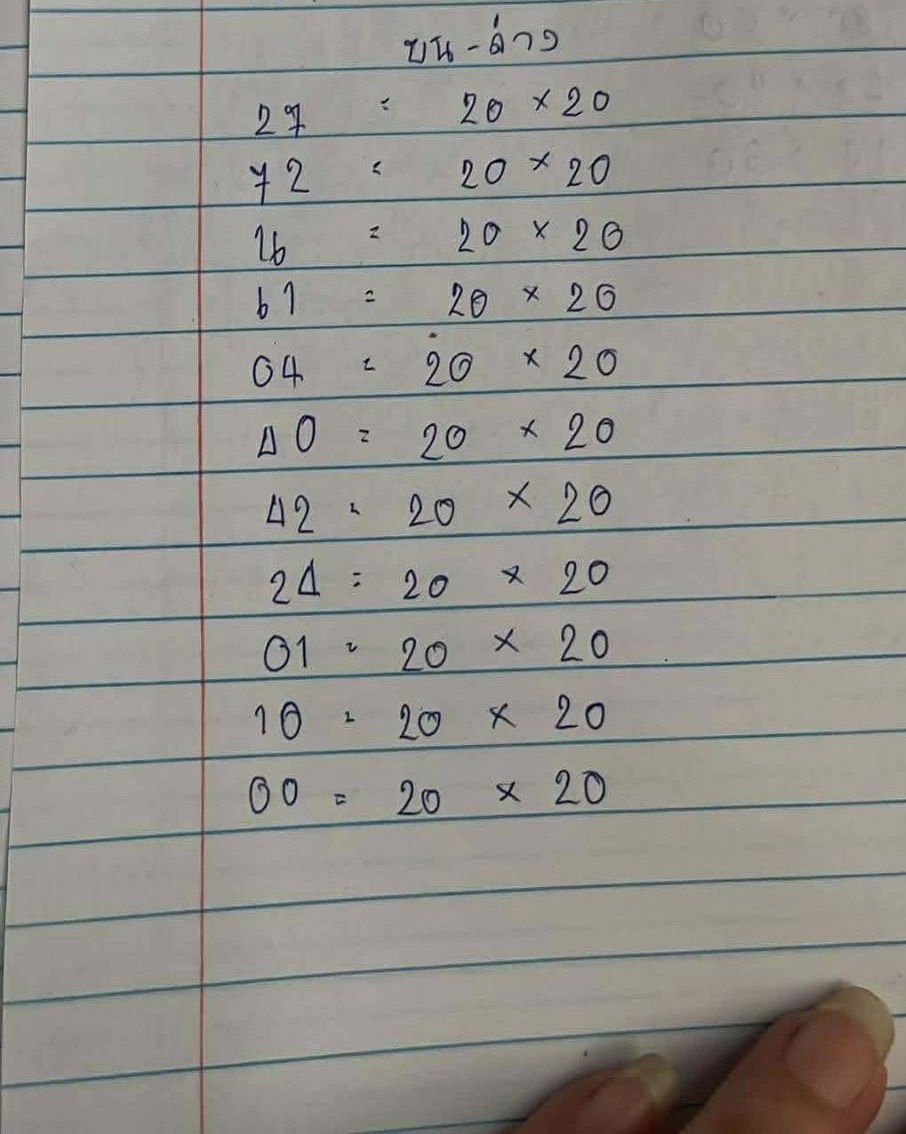 บน-ล่าง
27 = 20 × 20
72 = 20 × 20
16 = 20 × 20
61 = 20 × 20
04 = 20 × 20
40 = 20 × 20
42 = 20 × 20
24 = 20 × 20
01 = 20 × 20
10 = 20 × 20
00 = 20 × 20